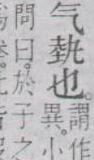 气埶也。謂作
異。小
問曰。於子之